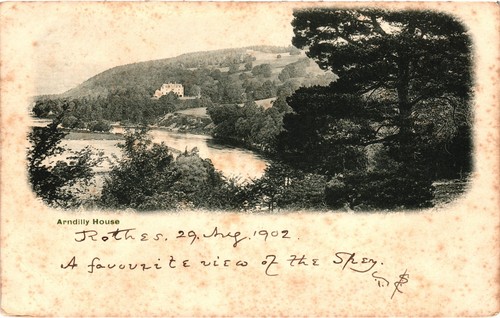 Arndilly House
Rothes. 29. Aug. 1902.
A favourite view of the Spey.